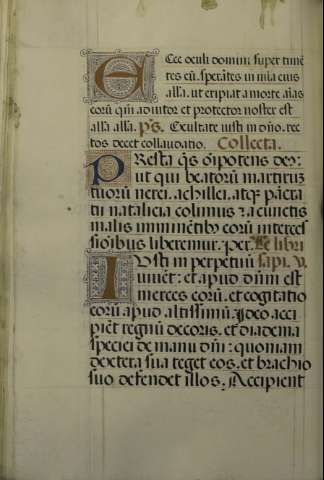 Ecce oculi domini super timē
tes eū. sperātes in mīa eius
alľa. ut eripiat a morte aīas
eorū qm̄ adiutor et protector noster est
alľa alľa. p̄s. Exultate iusti in dn̄o. rec
tos decet collaudatio. Collecta.
Presta qs oīpotens deꝰ:
ut qui beatorū martirū
tuorū nerei. achillei. atqꝫ pācra
tii natalicia colimus a cunctis
malis imminētibꝫ eorū interces
sionibus liberemur. Per. Le libri
Iusti in perpetuū sapi. V.
vivēt: et apud dn̄m est
merces eorū. et cogitatio
eorū apud altissimū. Ideo acci
piēt regnū decoris. et diadema
speciei de manu dn̄i: quoniam
dextera sua teget eos. et brachio
suo defendet illos. Accipient